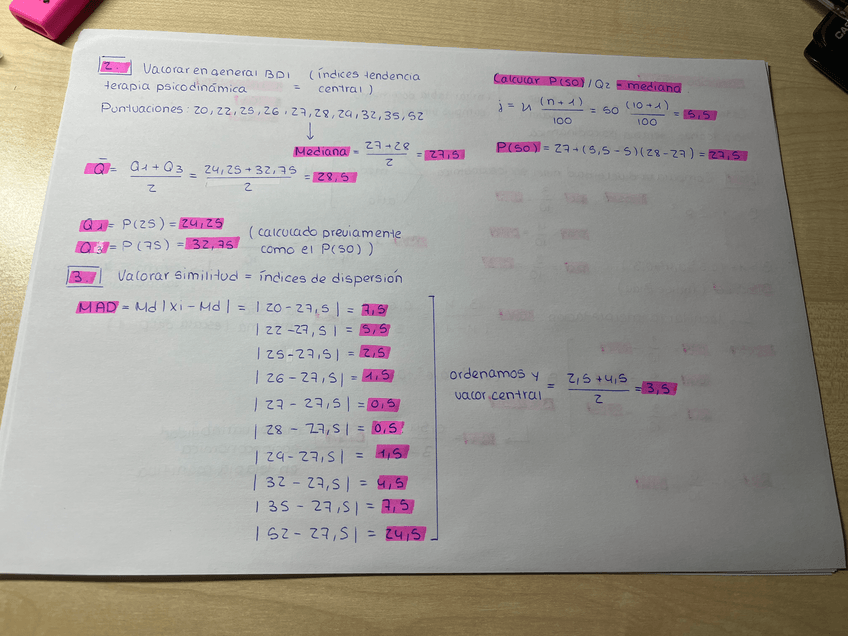 2. Valorar en general BDI (índices tendencia
terapia psicodinámica = central)
Puntuaciones: 20, 22, 25, 26, 27, 28, 29, 32, 35, 52
↓
Mediana = 27+28 / 2 = 27,5
Q̄ = Q1 + Q3 / 2 = 24,25 + 32,75 / 2 = 28,5
Q1 = P(25) = 24,25
Q3 = P(75) = 32,75
(calculado previamente
como el P(50))
Calcular P(50) / Q2 = mediana
j = k (n+1) / 100 = 50 (10+1) / 100 = 5,5
P(50) = 27 + (5,5 - 5)(28 - 27) = 27,5
3. Valorar similitud = índices de dispersión
MAD = Md |Xi - Md| = |20 - 27,5| = 7,5
|22 - 27,5| = 5,5
|25 - 27,5| = 2,5
|26 - 27,5| = 1,5
|27 - 27,5| = 0,5
|28 - 27,5| = 0,5
|29 - 27,5| = 1,5
|32 - 27,5| = 4,5
|35 - 27,5| = 7,5
|52 - 27,5| = 24,5
ordenamos y
valor central = 2,5 + 4,5 / 2 = 3,5